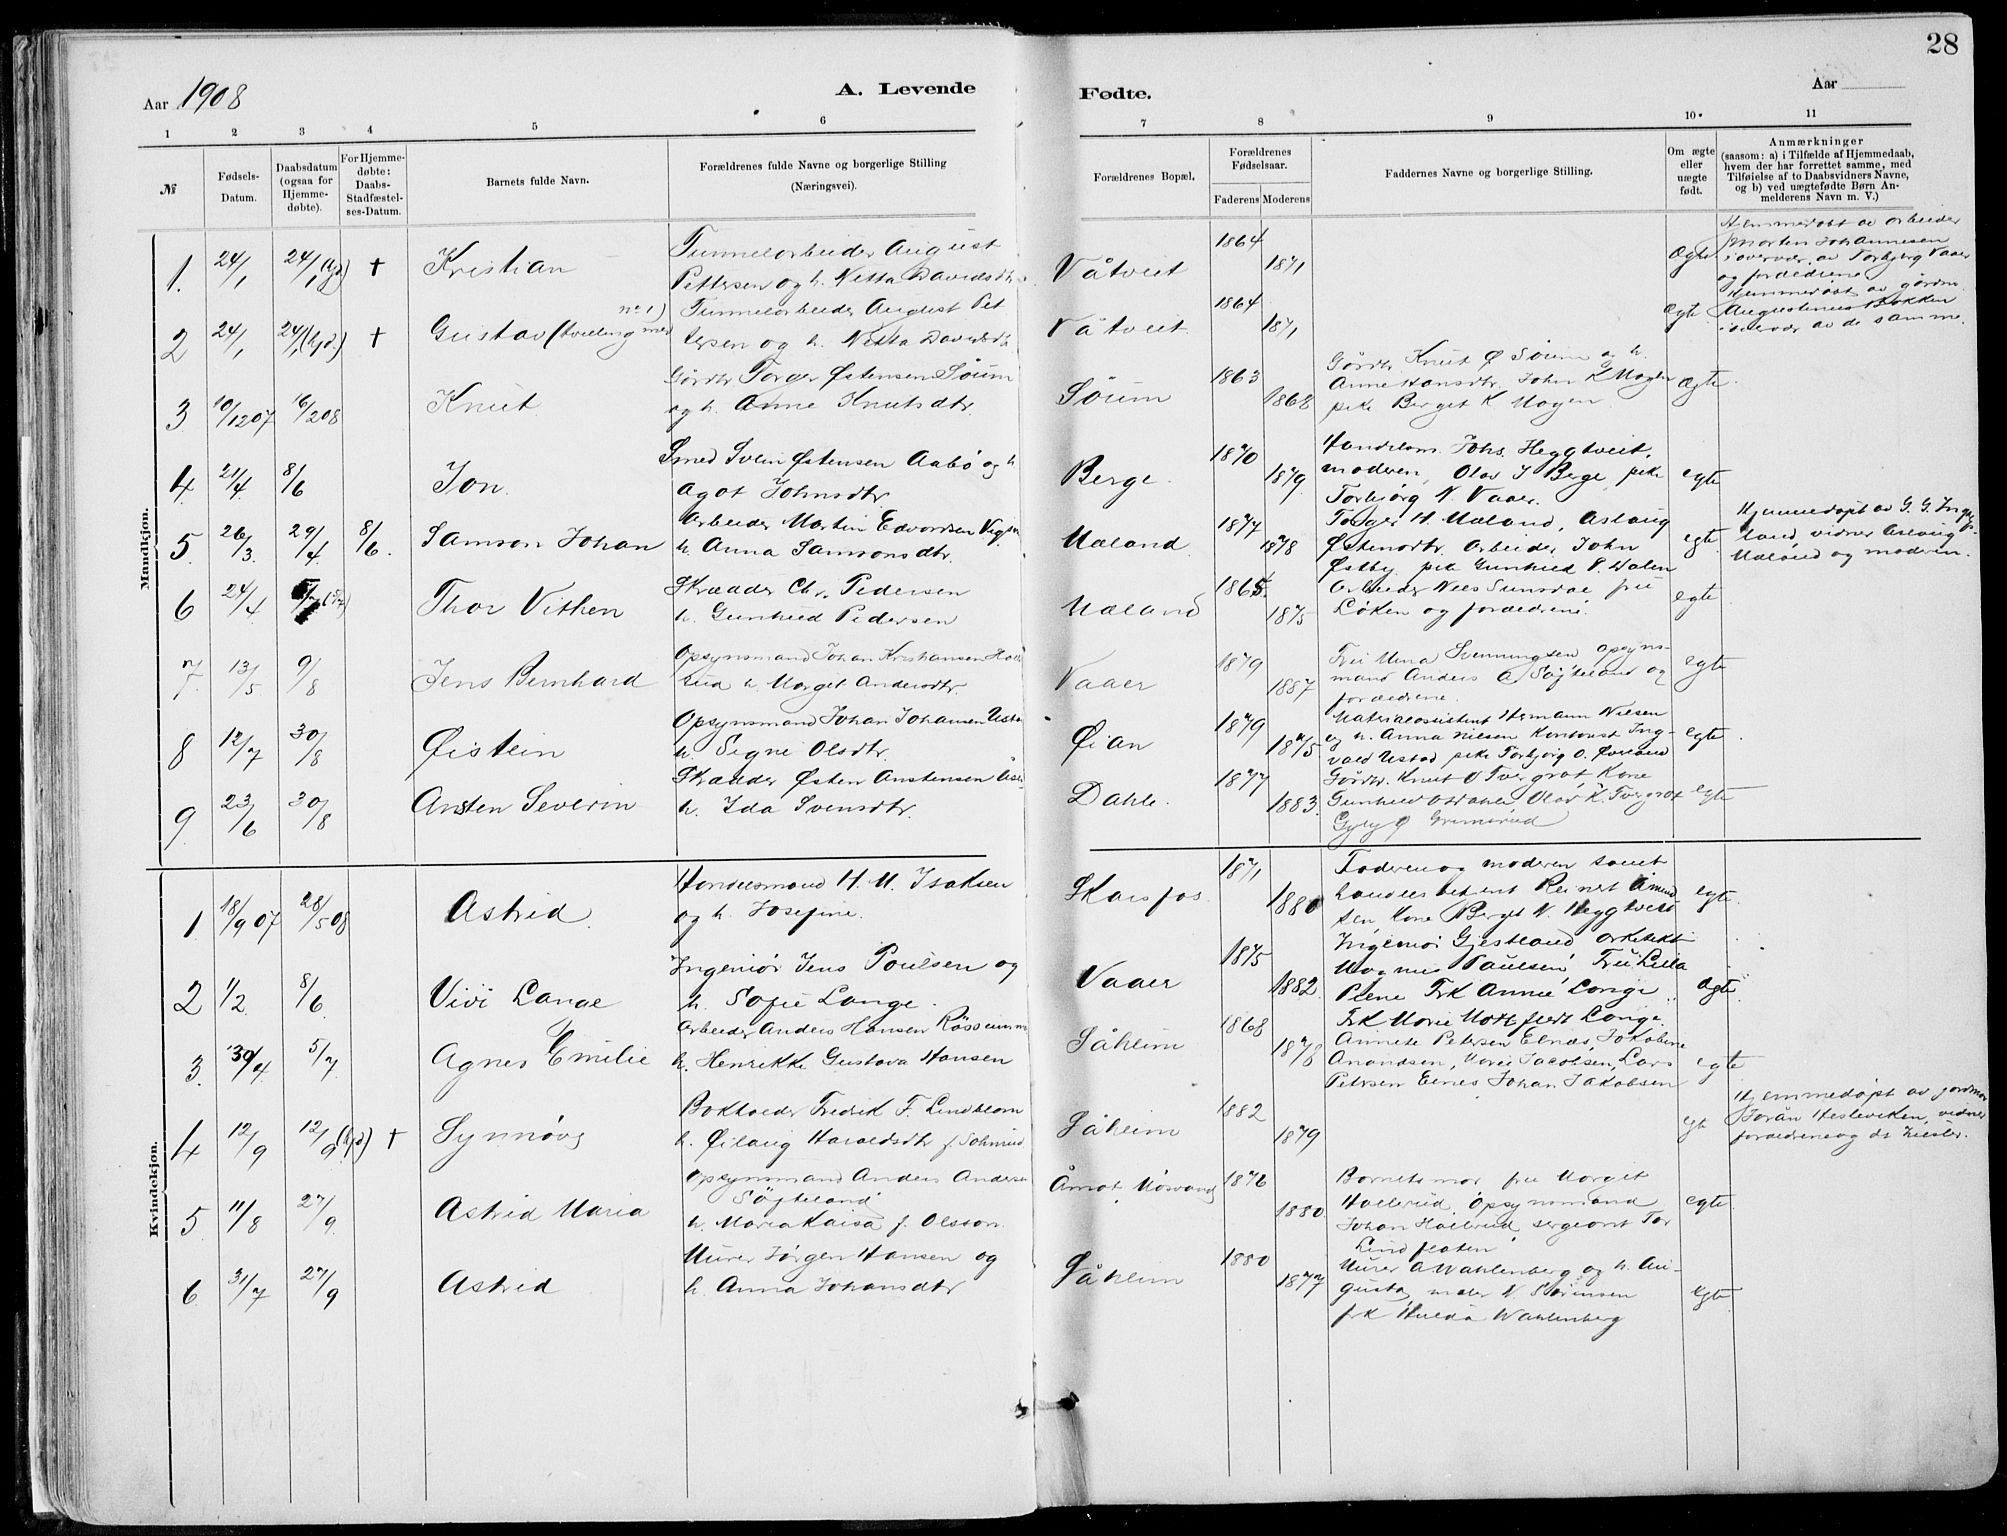 28
Aar 1908
A. Levende
Fødte.
Aar
1 2 3 4 5 6 7 8 9 10 11
№
Fødsels-
Datum.
Daabsdatum
(ogsaa for
Hjemme-
døbte).
For Hjemme-
døbte:
Daabs-
Stadfæstel-
ses-Datum.
Barnets fulde Navn.
Forældrenes fulde Navne og borgerlige Stilling
(Næringsvei).
Forældrenes Bopæl.
Forældrenes
Fødselsaar.
Faderens Moderens
Faddernes Navne og borgerlige Stilling.
Om ægte
eller
uægte
født.
Anmærkninger
(saasom: a) i Tilfælde af Hjemmedaab,
hvem der har forrettet samme, med
Tilføielse af to Daabsvidners Navne,
og b) ved uægtefødte Børn An-
melderens Navn m. V.)
Mandkjøn.
1. 24/1 24/1 † Kristian
Tunnelarbeider August
Pettersen og h. Netta Davidsdtr
Våtveit 1864 1871 Ægte
Hjemmedøbt av arbeider
Morten Johannesen
i overvær av Torbjørg Vaaer
og forældrene
2 24/1 24/1 (hjd.) † Gustav (tvilling med
no 1)
Tunnelarbeider August Pet
tersen og h. Netta Davidsdtr
Våtveit 1864 1871 ægte
Hjemmedøbt av gårdm.
Augustinus Bakken
i overvær av de samme.
3 10/12 07 16/2 08 Knut
Gårdbr Torger Østensen Søum
og h. Anne Knutsdtr.
Søum 1863 1868
Gårdbr. Knut Ø Søum og h.
Anne Hansdtr. John K Mogen
pike Berget K Mogen
Ægte
4. 21/4. 8/6 Jon.
Smed Svein Østensen Aabø og h
Agot Johnsdtr.
Berge. 1870 1879.
Handelsm. Johs. Heggtveit,
moderen, Olav J Berge, pike
Torbjørg N. Vaaer.
egte
5. 26/3. 29/4 8/6. Samson Johan
Arbeider Martin Edvardsen
h. Anna Samsonsdtr.
Uæland 1877 1878
Torger H. Uæland, Aslaug
Østensdtr. Arbeider John
Østby pike Gunhild P. Dalen
egte.
Hjemmedøpt av G. G. Ingolfs
land vidner Aslaug
Uæland og moderen.
6 24/4 Thor Vithen
Skræder Chr. Pedersen
h. Gunhild Pedersen
Uæland 1865. 1875
Arbeider Nees Sunsdal fru
Løken og forældrene.
egte
7. 13/5 9/8 Jens Bernhard
Opsynsmand Johan Kristiansen Holl
rud h. Margit Andersdtr.
Vaaer 1879 1887
Fru Mina Svenningsen opsyns-
mand Anders A Søgteland og
forældrene.
egte
8 12/7 30/8 Øistein
Opsynsmand Johan Johansen Ustad
h. Signe Olsdtr.
Øian 1879 1875
Materialassistent Hermann Nielsen
og h. Anna Nielsen Kontorist Ing-
vald Ustad pike Torbjørg O. Øverland
egte
9 23/6 30/8 Ansten Severin
Skræder Østen Anstensen
h. Ida Svensdtr.
Dahle. 1877 1883.
Gårdbr. Knut O Tvergrot Kone
Gunhild Olsdahle Olav K. Tvergrot
Gyly Ø Grimsrud
egte
Kvindekjøn.
1. 18/9 07 28/5 08 Astrid
Handelsmand H. M. Isaksen
og h. Josefine.
Skarsfos. 1871 1880
Faderen og moderen samt
handelsbetjent Reinert Åmund
sen Kone Berget N. Heggtveit
egte.
2 1/2. 8/6. Vivi Lange
Ingeniør Jens Poulsen og
h. Sofie Lange.
Vaaer 1875 1882
Ingeniør Gjestland arkitekt
Magnus Paulsen, Fru Lella
Plene Frk Annie Lange
Frk Marie Lange.
ægte
3. 30/4 5/7 Agnes Emilie
Arbeider Anders Hansen
h. Henrikke Gustava Hansen
Såheim 1868 1878
Annete Petersen Elnes, Jakobine
Anandsen, Marie Jacobsen, Lars
Petersen Elnes Johan Jakobsen
egte
4 12/9 12/9 (hjd) † Synnøve
Boktolder Fredrik F. Lindblom
h. Øilaug Haraldsdtr f. Schmed
Såheim 1882 1879 egte
Hjemmedøpt av jordmor
Jorån Hesleviken, vidner
forældrene og dr.
5 11/8 27/9. Astrid Maria
Opsynsmand Anders Andersen
Søgteland
h. Maria Kaisa f. Olsson.
Åmot, Møsvand 1876 1880.
Barnets mor fru Margit
Hollerud, Opsynsmand
Johan Hollerud, sergeant Tor
Lindflaten
egte.
6. 31/7 27/9 Astrid
Murer Jørgen Hansen og
h. Anna Johansdtr
Såheim 1880 1877
Murer A Wahlenberg og h. Au-
gusta, maler N. Sørensen
frk Hulda Wahlenberg
egte